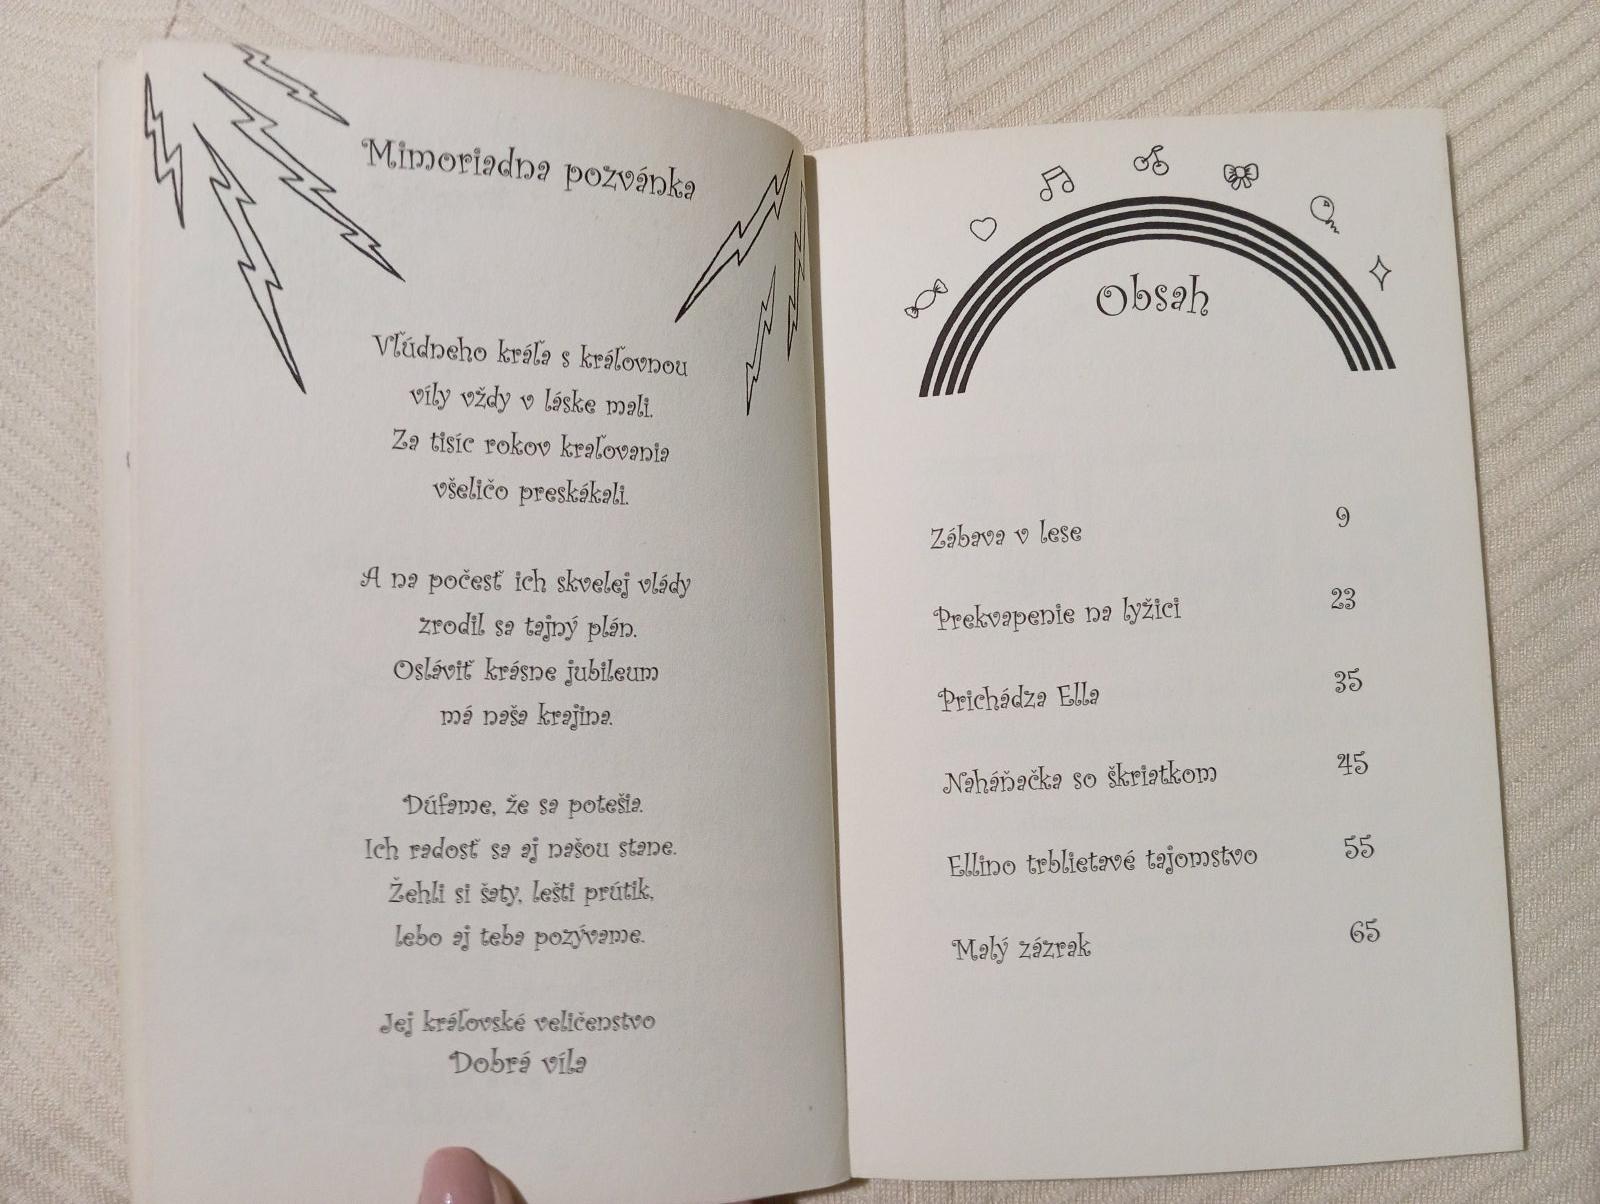 Mimoriadna pozvánka
Vľúdneho kráľa s kráľovnou
víly vždy v láske mali.
Za tisíc rokov kraľovania
všeličo preskákali.
A na počesť ich skvelej vlády
zrodil sa tajný plán.
Osláviť krásne jubileum
má naša krajina.
Dúfame, že sa potešia.
Ich radosť sa aj našou stane.
Žehli si šaty, lešti prútik,
lebo aj teba pozývame.
Jej kráľovské veličenstvo
Dobrá víla
Obsah
Zábava v lese 9
Prekvapenie na lyžici 23
Prichádza Ella 35
Naháňačka so škriatkom 45
Ellino trblietavé tajomstvo 55
Malý zázrak 65